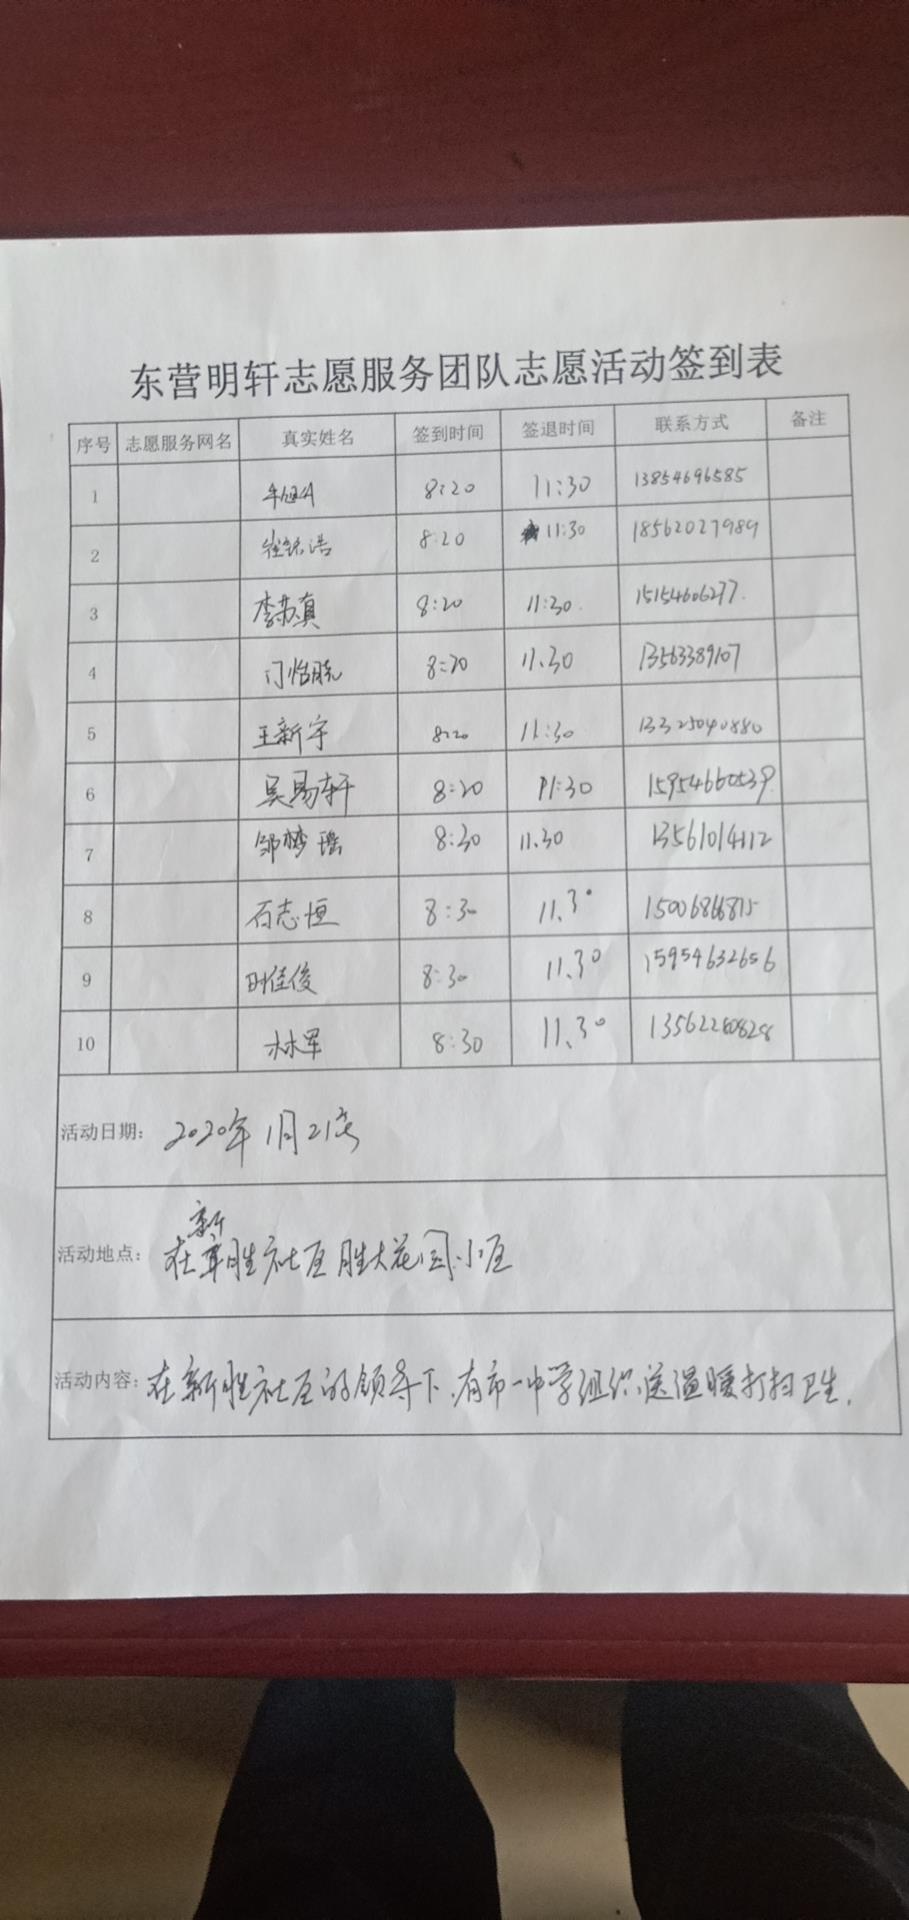 东营明轩志愿服务团队志愿活动签到表
序号 志愿服务网名 真实姓名 签到时间 签退时间 联系方式 备注
1 8:20 11:30 13854696585
2 崔铭浩 8:20 11:30 18562027989
3 李苏真 8:20 11:30. 15154606277.
4 门怡晓 8:20 11.30 13563389107
5 王新宇 8:20 11:30 13325040880
6 吴易轩 8:20 11:30 15954660539
7 邹梦瑶 8:30 11.30 13561014112
8 石志恒 8:30 11.30
9 时佳俊 8:30 11.30 15954632656
10 林军 8:30 11.30 13562280828
活动日期: 2020年1月21号
新
活动地点: 在胜社区胜大花园小区
活动内容: 在新胜社区的领导下,有市一中学组织送温暖打扫卫生.